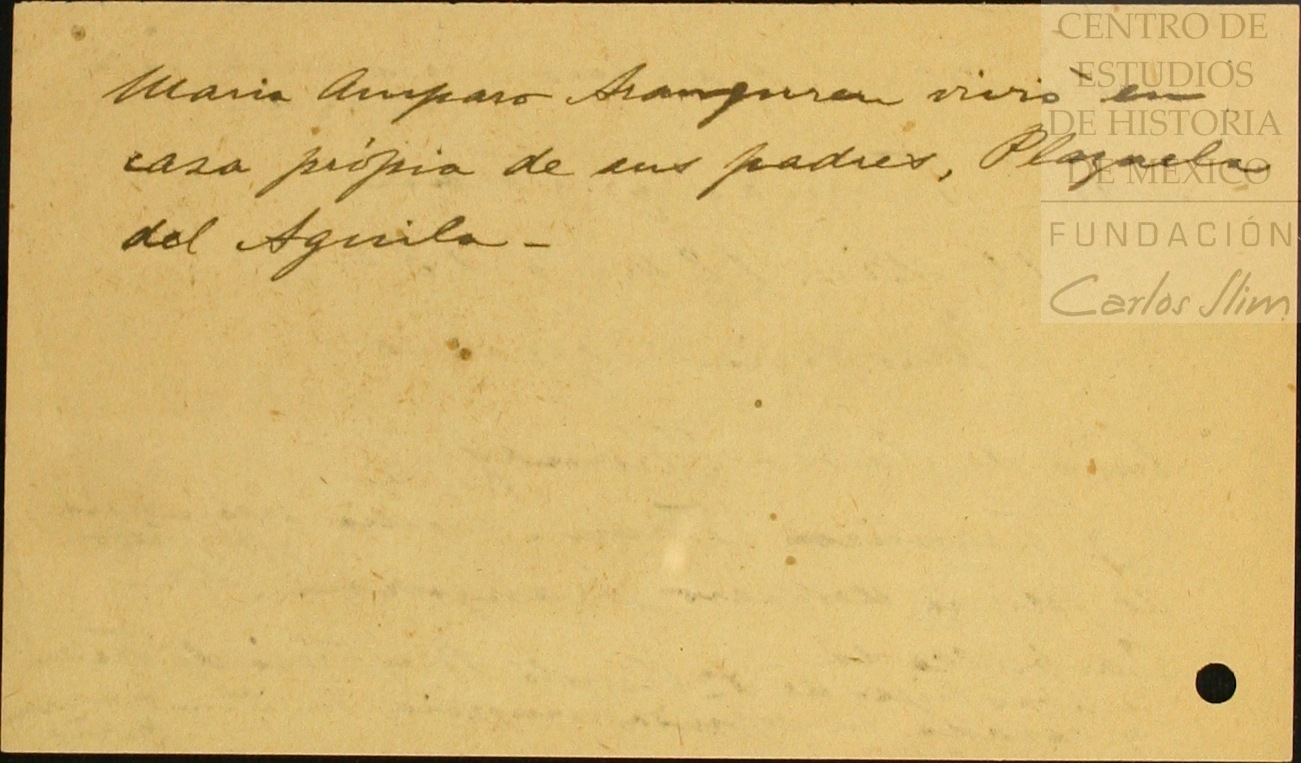 Maria Amparo Aranguren vivió en
casa própia de sus padres, Plazuela
del Aguila -
CENTRO DE
ESTUDIOS
DE HISTORIA
DE MÉXICO
FUNDACIÓN
Carlos Slim